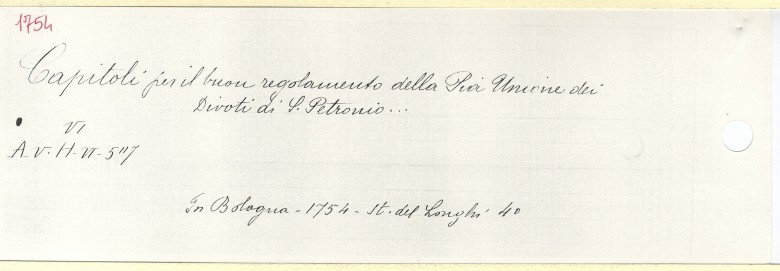 1754
Capitoli per il buon regolamento della Pia Unione dei
Divoti di S. Petronio...
VI
A-V-H-VI-5"7
In Bologna - 1754 - St. del Longhi 4º